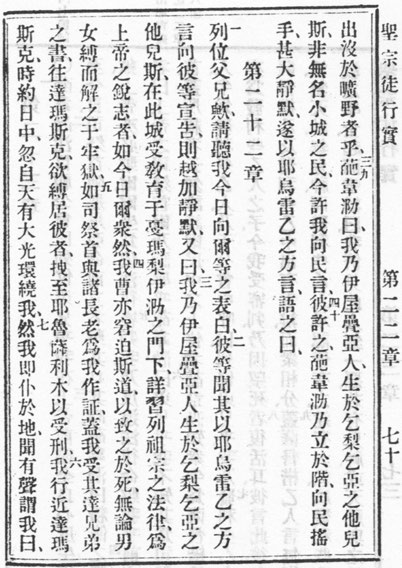 聖宗徒行實 第二二章 七十七
出沒於曠野者乎、三九葩韋泐曰、我乃伊屋疊亞人、生於乞梨乞亞之他兒
斯、非無名小城之民、今許我向民言、四十彼許之、葩韋泐乃立於階、向民搖
手、甚大靜默、遂以耶烏雷乙之方言語之曰、
第二十二章
一列位父兄歟、請聽我今日向爾等之表白、二彼等聞其以耶烏雷乙之方
言、向彼等宣告、則越加靜默、又曰、三我乃伊屋疊亞人、生於乞梨乞亞之
他兒斯、在此城受教育于戛瑪梨伊泐之門下、詳習列祖宗之法律、為
上帝之銳志者、如今日爾衆然、四我曹亦窘迫斯道、以致之於死、無論男
女、縛而解之于牢獄、五如司祭首與諸長老為我作証、蓋我受其達兄弟
之書、往達瑪斯克、欲縛居彼者、拽至耶魯薩利木以受刑、六我行近達瑪
斯克、時約日中、忽自天有大光環繞我、七然我即仆於地、聞有聲謂我曰、